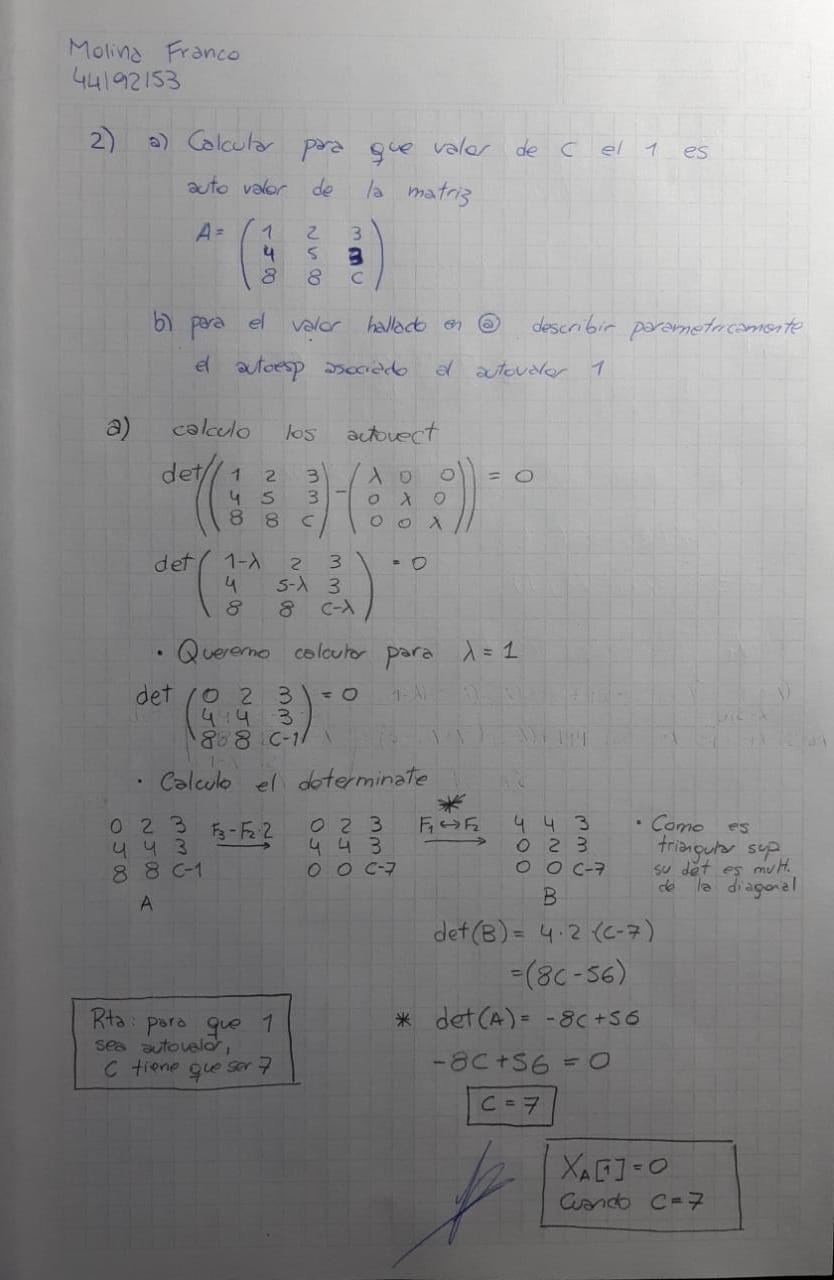 Molina Franco
44192153
2) a) Calcular para que valor de C el 1 es
auto valor de la matriz
A = ( 1 2 3
4 5 3
8 8 C )
b) para el valor hallado en ⓐ describir parametricamente
el autoesp asociado al autovalor 1
a) calculo los autovect
det(( 1 2 3 ) - ( λ 0 0 )) = 0
4 5 3 0 λ 0
8 8 C 0 0 λ
det ( 1-λ 2 3 ) = 0
4 5-λ 3
8 8 C-λ
• Queremo calcular para λ = 1
det ( 0 2 3 ) = 0
4 4 3
8 8 C-1
• Calculo el determinate
*
0 2 3 F₃-F₂·2 → 0 2 3 F₁↔F₂ → 4 4 3 • Como es
4 4 3 4 4 3 0 2 3 triangular sup
8 8 C-1 0 0 C-7 0 0 C-7 su det es mult.
A B de la diagonal
det(B) = 4·2·(C-7)
=(8C-56)
* det(A) = -8C+56
-8C+56 = 0
C = 7
Rta: para que 1
sea autovalor,
C tiene que ser 7
X_A[1] = 0
Cuando C=7